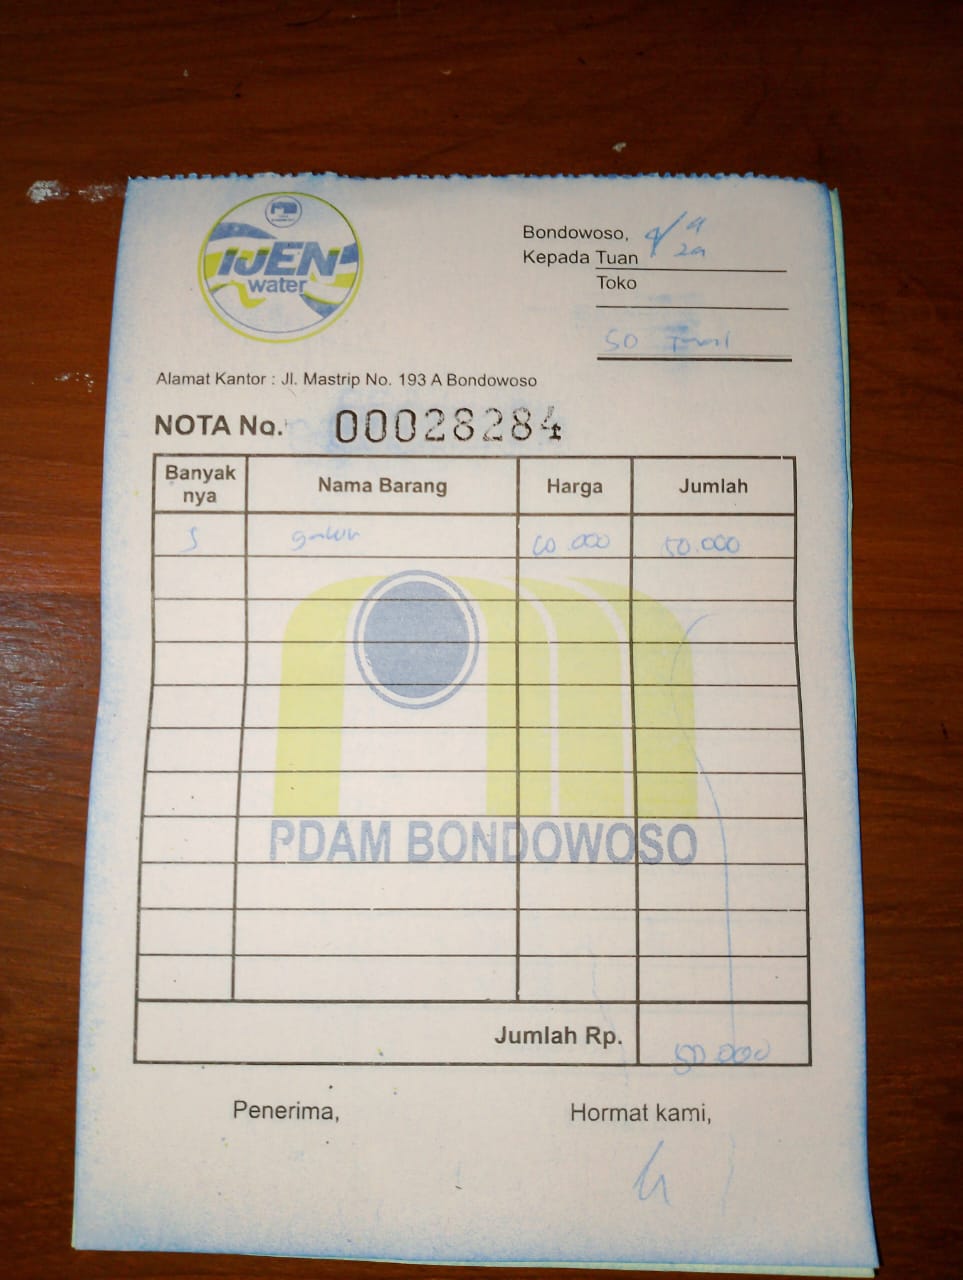 IJEN
water
Bondowoso,
Kepada Tuan
Toko
SD
Alamat Kantor : Jl. Mastrip No. 193 A Bondowoso
NOTA No. 00028284
Banyak nya Nama Barang Harga Jumlah
5 galon 10.000 50.000
PDAM BONDOWOSO
Jumlah Rp. 50.000
Penerima, Hormat kami,